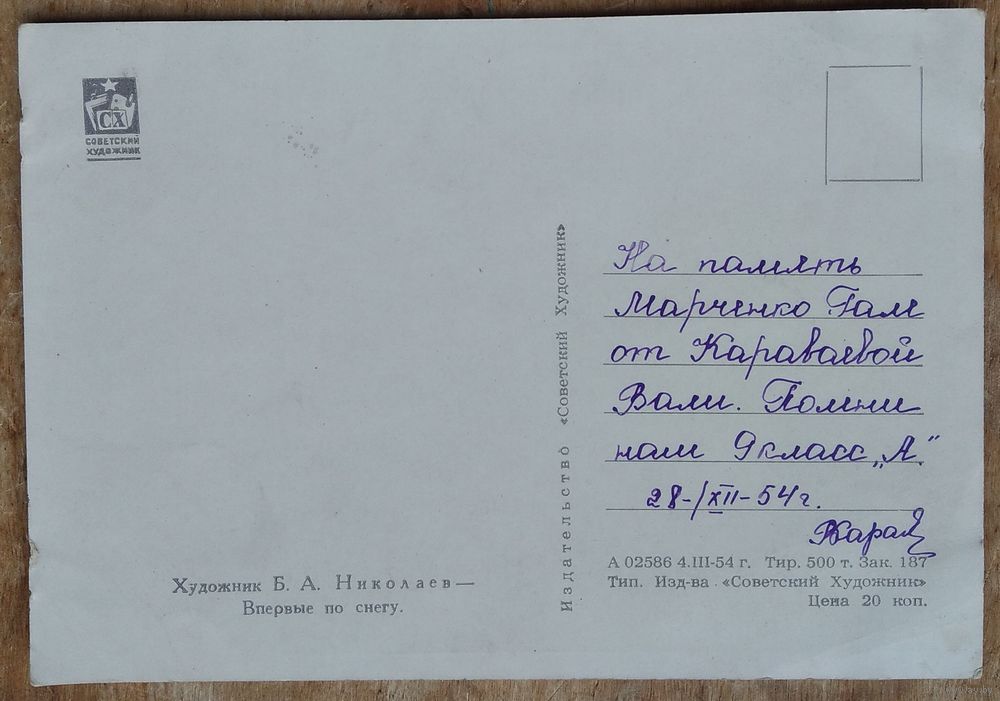 СХ
СОВЕТСКИЙ
ХУДОЖНИК
Издательство «Советский Художник»
На память
Марченко Гале
от Караваевой
Вали. Помни
наш 9 класс „А."
28-/XII-54 г.
Художник Б. А. Николаев—
Впервые по снегу.
А 02586 4.III-54 г. Тир. 500 т. Зак. 187
Тип. Изд-ва «Советский Художник»
Цена 20 коп.